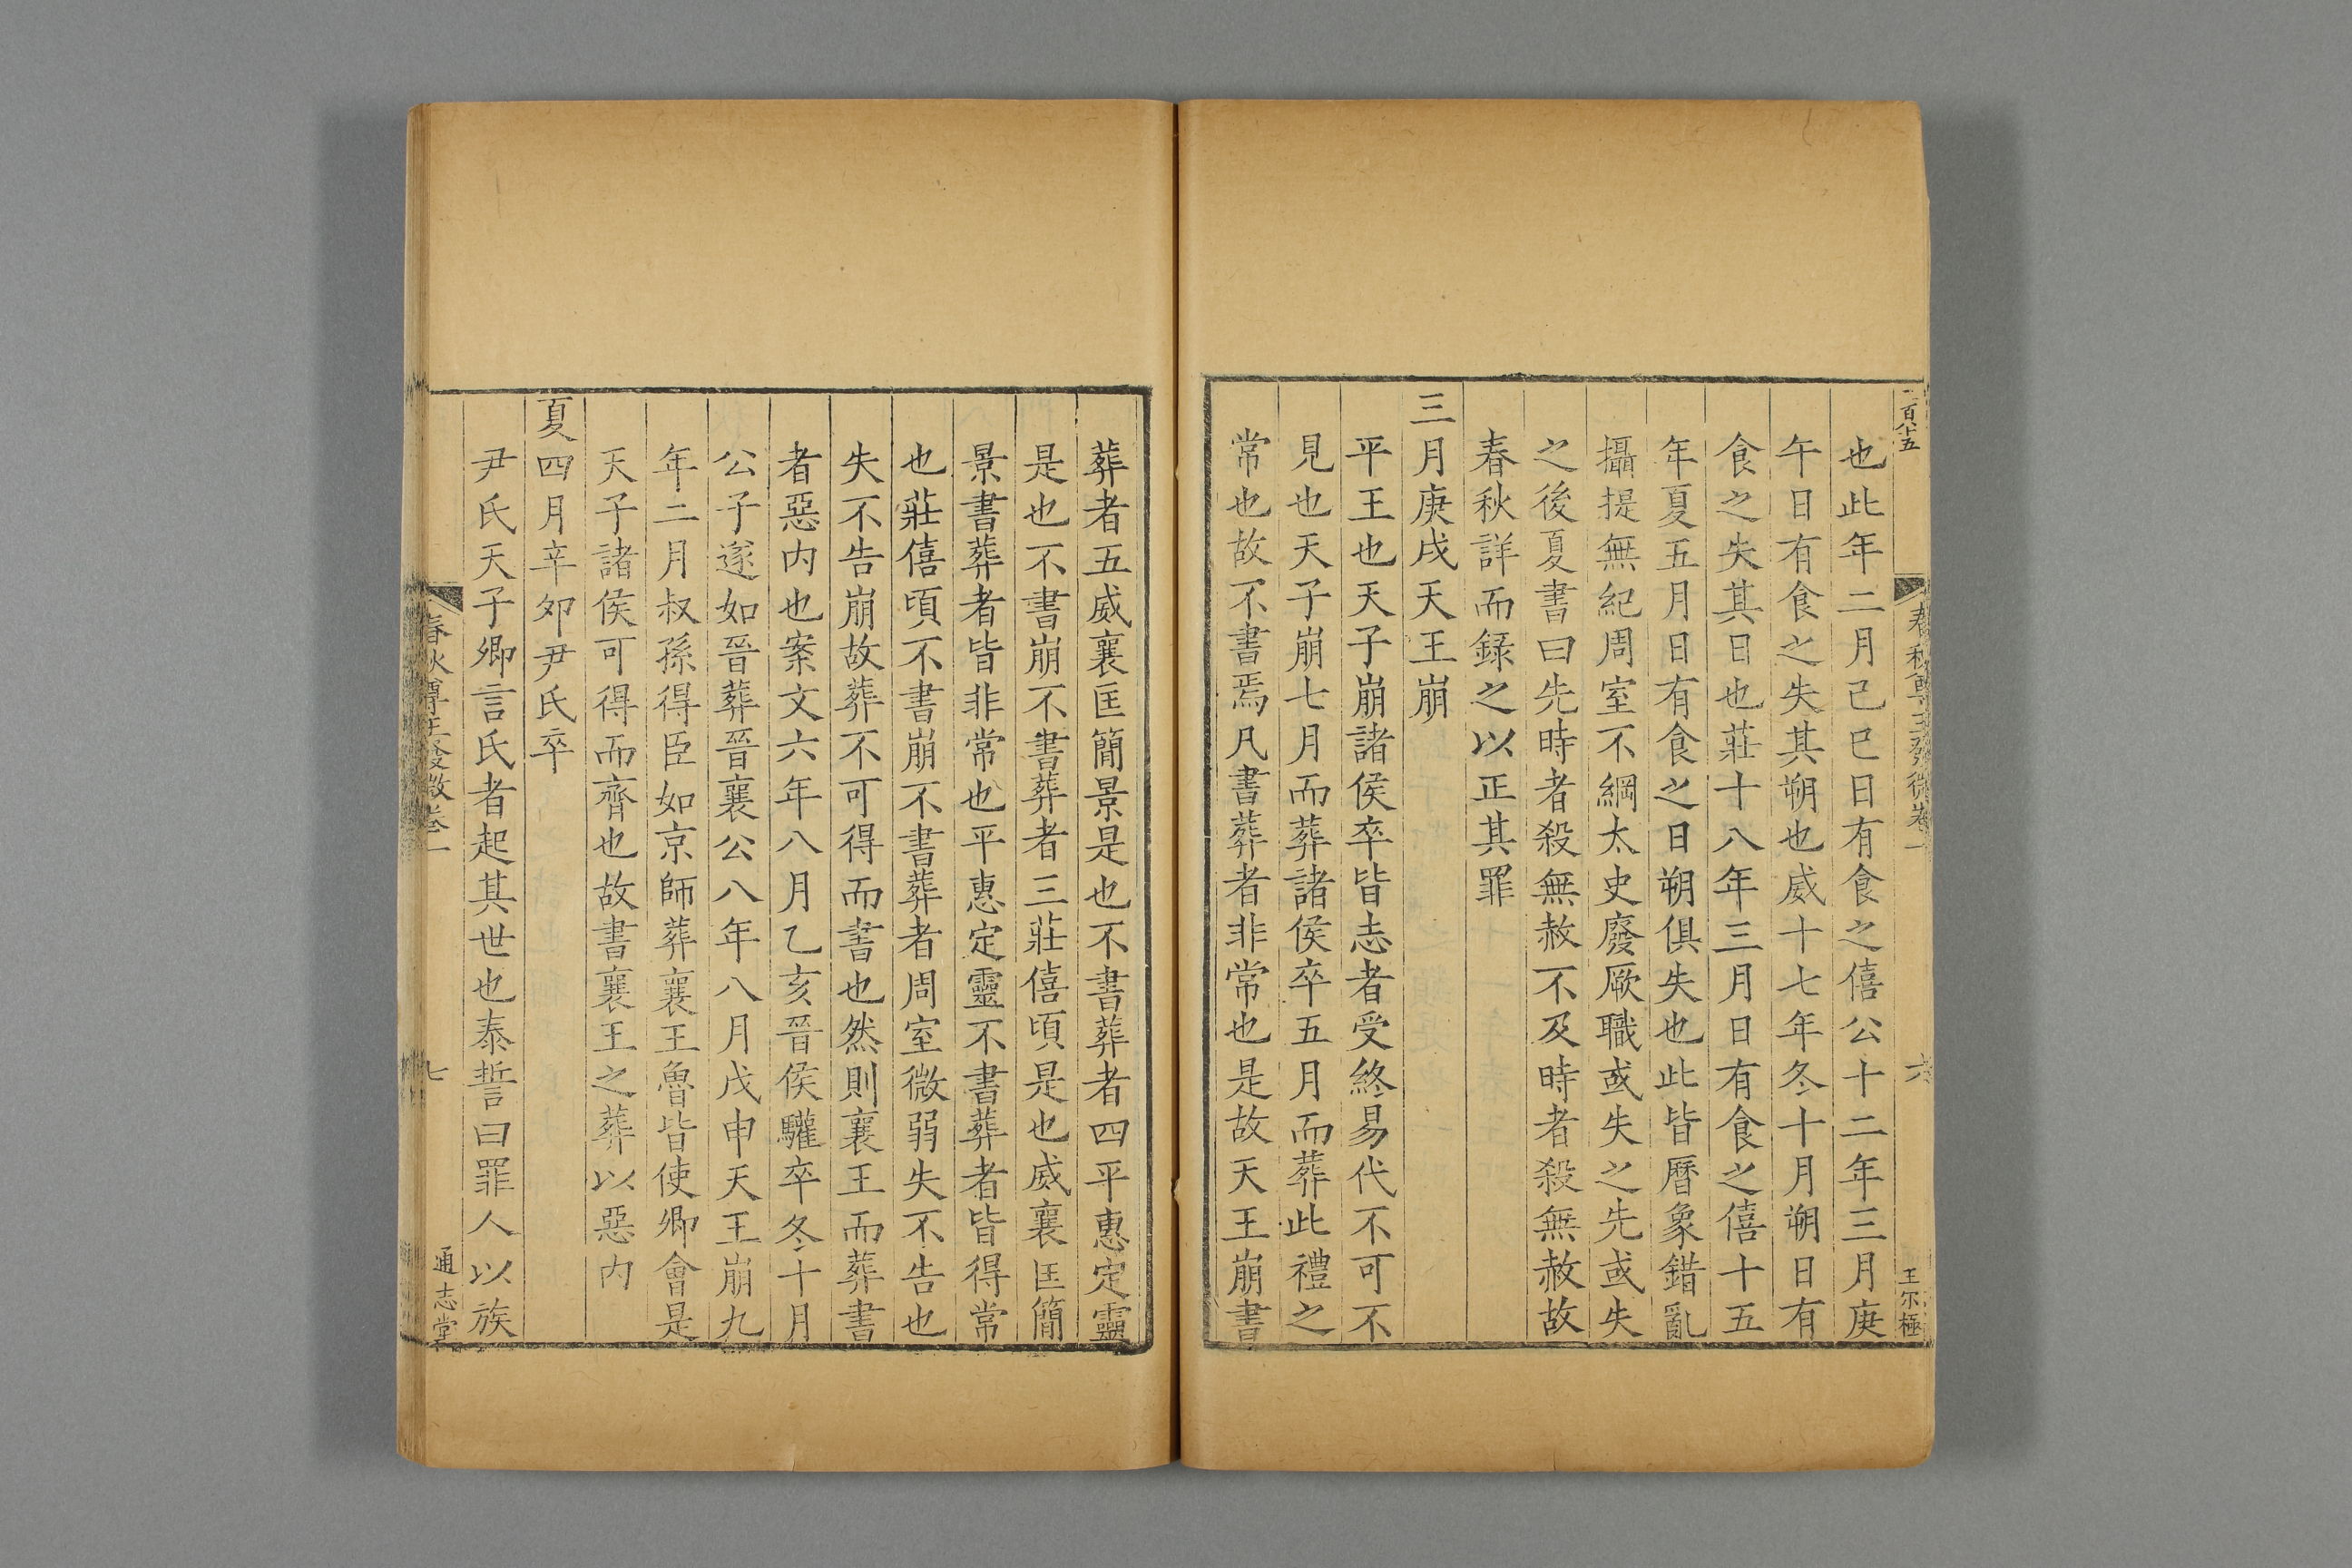 二百八十五
春秋尊王發微卷一
六
王尔極
也此年二月己巳日有食之僖公十二年三月庚
午日有食之失其朔也威十七年冬十月朔日有
食之失其日也莊十八年三月日有食之僖十五
年夏五月日有食之日朔俱失也此皆曆象錯亂
攝提無紀周室不綱太史廢厥職或失之先或失
之後夏書曰先時者殺無赦不及時者殺無赦故
春秋詳而錄之以正其罪
三月庚戌天王崩
平王也天子崩諸侯卒皆志者受終易代不可不
見也天子崩七月而葬諸侯卒五月而葬此禮之
常也故不書焉凡書葬者非常也是故天王崩書
葬者五威襄匡簡景是也不書葬者四平惠定靈
是也不書崩不書葬者三莊僖頃是也威襄匡簡
景書葬者皆非常也平惠定靈不書葬者皆得常
也莊僖頃不書崩不書葬者周室微弱失不告也
失不告崩故葬不可得而書也然則襄王而葬書
者惡內也案文六年八月乙亥晉侯驩卒冬十月
公子遂如晉葬晉襄公八年八月戊申天王崩九
年二月叔孫得臣如京師葬襄王魯皆使卿會是
天子諸侯可得而齊也故書襄王之葬以惡內
夏四月辛夘尹氏卒
尹氏天子卿言氏者起其世也泰誓曰罪人以族
春秋尊王發微卷一
七
通志堂